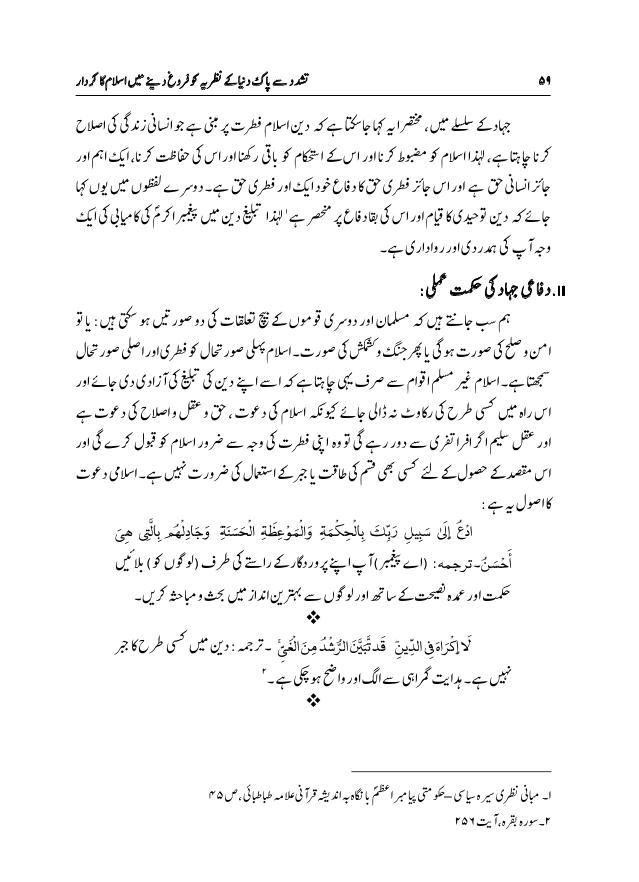 ۵۹ تشدد سے پاک دنیا کے نظریہ کو فروغ دینے میں اسلام کا کردار
جہاد کے سلسلے میں، مختصرا یہ کہا جاسکتا ہے کہ دین اسلام فطرت پر مبنی ہے جو انسانی زندگی کی اصلاح
کرنا چاہتا ہے، لہٰذا اسلام کو مضبوط کرنا اور اس کے استحکام کو باقی رکھنا اور اس کی حفاظت کرنا، ایک اہم اور
جائز انسانی حق ہے اور اس جائز فطری حق کا دفاع خود ایک اور فطری حق ہے۔ دوسرے لفظوں میں یوں کہا
جائے کہ دین توحیدی کا قیام اور اس کی بقا دفاع پر منحصر ہے ۱ لہٰذا تبلیغ دین میں پیغمبر اکرمؐ کی کامیابی کی ایک
وجہ آپ کی ہمدردی اور رواداری ہے۔
II. دفاعی جہاد کی حکمت عملی:
ہم سب جانتے ہیں کہ مسلمان اور دوسری قوموں کے بیچ تعلقات کی دو صورتیں ہو سکتی ہیں: یا تو
امن و صلح کی صورت ہوگی یا پھر جنگ و کشمکش کی صورت۔ اسلام پہلی صورتحال کو فطری اور اصلی صورتحال
سمجھتا ہے۔ اسلام غیر مسلم اقوام سے صرف یہی چاہتا ہے کہ اسے اپنے دین کی تبلیغ کی آزادی دی جائے اور
اس راہ میں کسی طرح کی رکاوٹ نہ ڈالی جائے کیونکہ اسلام کی دعوت ، حق و عقل و اصلاح کی دعوت ہے
اور عقل سلیم اگر افرا تفری سے دور رہے گی تو وہ اپنی فطرت کی وجہ سے ضرور اسلام کو قبول کرے گی اور
اس مقصد کے حصول کے لئے کسی بھی قسم کی طاقت یا جبر کے استعمال کی ضرورت نہیں ہے۔ اسلامی دعوت
کا اصول یہ ہے :
ادْعُ إِلَىٰ سَبِيلِ رَبِّكَ بِالْحِكْمَةِ وَالْمَوْعِظَةِ الْحَسَنَةِ وَجَادِلْهُم بِالَّتِي هِيَ
أَحْسَنُ۔ ترجمہ: (اے پیغمبر) آپ اپنے پروردگار کے راستے کی طرف (لوگوں کو) بلائیں
حکمت اور عمدہ نصیحت کے ساتھ اور لوگوں سے بہترین انداز میں بحث و مباحثہ کریں۔
❖
لَا إِكْرَاهَ فِي الدِّينِ قَد تَّبَيَّنَ الرُّشْدُ مِنَ الْغَيِّ ۔ ترجمہ: دین میں کسی طرح کا جبر
نہیں ہے۔ ہدایت گمراہی سے الگ اور واضح ہو چکی ہے۔ ۲
❖
۱۔ مبانی نظری سیرہ سیاسی – حکومتی پیامبر اعظمؐ با نگاہ بہ اندیشہ قرآنی علامہ طباطبائی، ص ۴۵
۲۔ سورہ بقرہ، آیت ۲۵۶